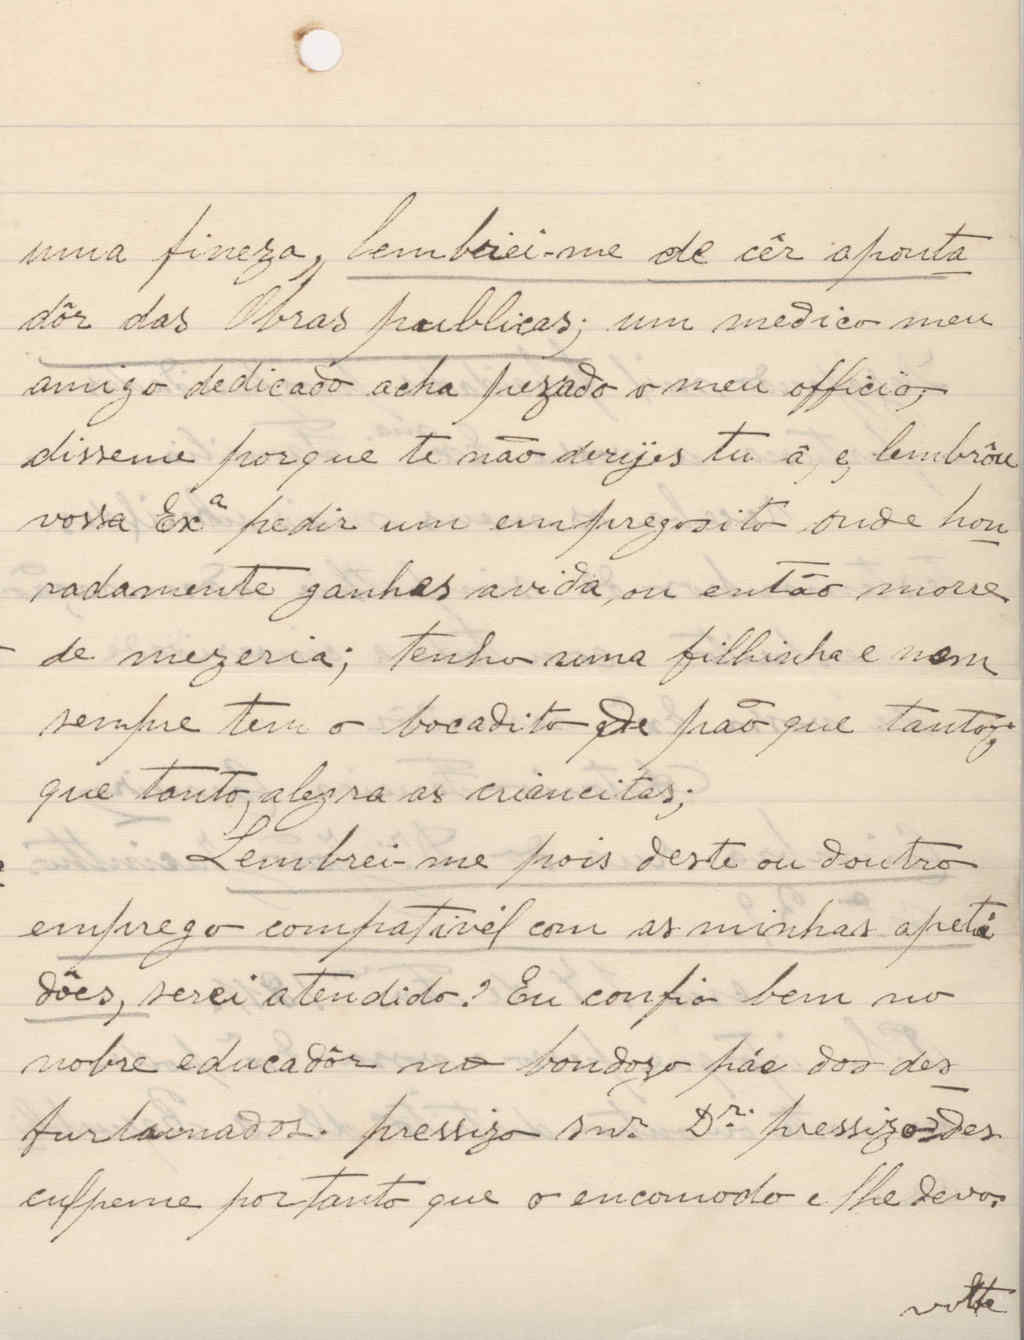 uma fineza, lembrei-me de cêr aponta
dôr das Obras publicas; um medico meu
amigo dedicado acha pezado o meu officio,
disseme porque te não derijes tu â, e, lembrôu
vossa Exª pedir um empregosito onde hon
radamente ganhes avida, ou então morre
de mezeria; tenho uma filhinha e nem
sempre tem o bocadito de pão que tanto,
que tanto, alegra as criancitas;
Lembrei-me pois deste ou doutro
emprego compativél com as minhas apeti
dões, serei atendido? Eu confio bem no
nobre educadôr no bondozo páe dos des
furtounados. pressizo snr. Dr. pressizo des
culpeme portanto que o encomodo e lhe devo.
volte